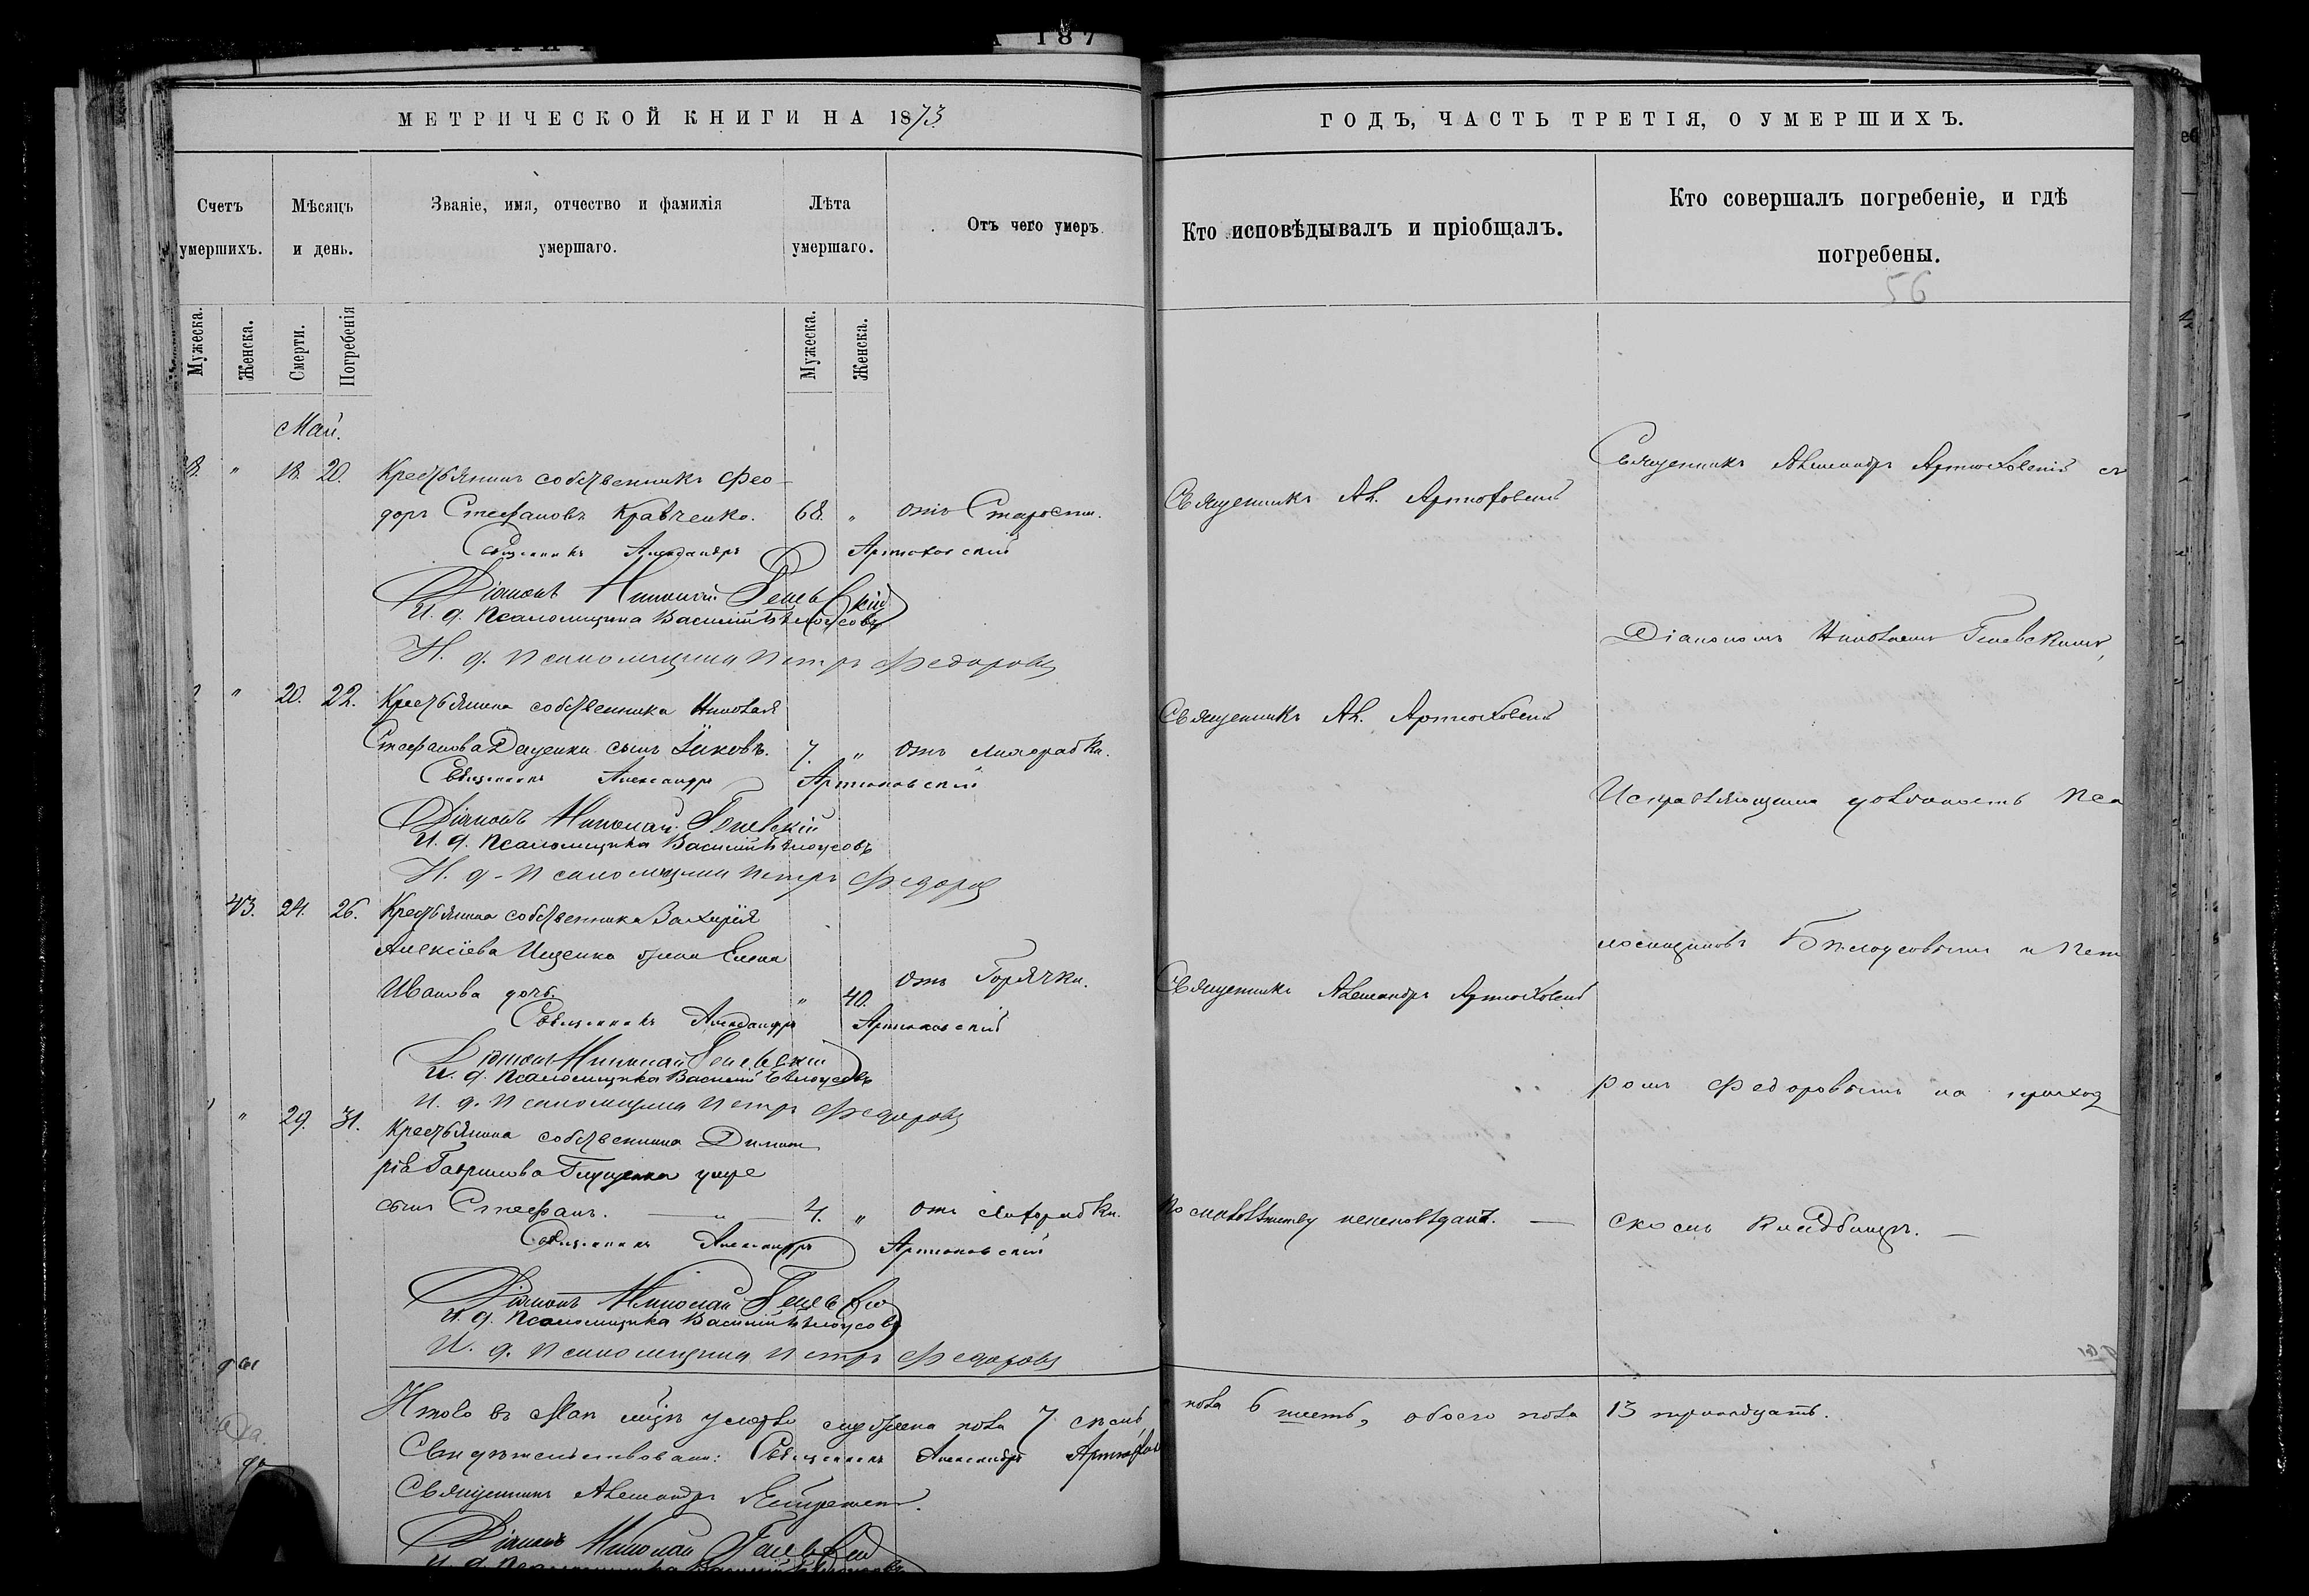 МЕТРИЧЕСКОЙ КНИГИ НА 1873
Счетъ умершихъ.
Мѣсяцъ и день.
Званіе, имя, отчество и фамилія умершаго.
Лѣта умершаго.
Отъ чего умеръ
Мужеска.
Женска.
Смерти.
Погребенія
Мужеска.
Женска.
Май.
" 18. 20. Крестьянинъ собственникъ Фео-
доръ Стефановъ Кравченко. 68. " отъ Старости.
Священникъ Александръ Артюховскій
Діаконъ Николай
И. д. Псаломщика Василій Бѣлоусовъ
И. д. Псаломщика Петръ Федоровъ
" 20. 22. Крестьянина собственника Николая
Стефанова Даценки сынъ Іаковъ. 7. " отъ лихорадки.
Священникъ Александръ Артюховскій
Діаконъ Николай
И. д. Псаломщика Василій Бѣлоусовъ
И. д. Псаломщика Петръ Федоровъ
24. 26. Крестьянина собственника Захарія
Алексіева Ищенка жена Елена
Иванова дочь. " 40. отъ Горячки.
Священникъ Александръ Артюховскій
Діаконъ Николай
И. д. Псаломщика Василій Бѣлоусовъ
И. д. Псаломщика Петръ Федоровъ
" 29. 31. Крестьянина собственника Димит
рія Гаврилова
сынъ Стефанъ. — " — 4. " отъ лихорадки.
Священникъ Александръ Артюховскій
Діаконъ Николай
И. д. Псаломщика Василій Бѣлоусовъ
И. д. Псаломщика Петръ Федоровъ
Итого въ Маи умерло мужеска пола 7 семь,
Свидѣтельствовали: Священникъ Александръ
Священникъ Александръ
Діаконъ Николай
ГОДЪ, ЧАСТЬ ТРЕТІЯ, О УМЕРШИХЪ.
Кто исповѣдывалъ и пріобщалъ.
Кто совершалъ погребеніе, и гдѣ
погребены.
56
Священникъ Александръ Артюховскій съ
Священникъ Ал. Артюховскій
Діакономъ Николаемъ
Священникъ Ал. Артюховскій
Исправляющими должность Пса
ломщиковъ Бѣлоусовымъ и Пет
Священникъ Александръ Артюховскій
ромъ Федоровымъ на приход
По малолѣтству неисповѣданъ. —
скомъ кладбищѣ. —
пола 6 шесть, обоего пола 13 тринадцать.